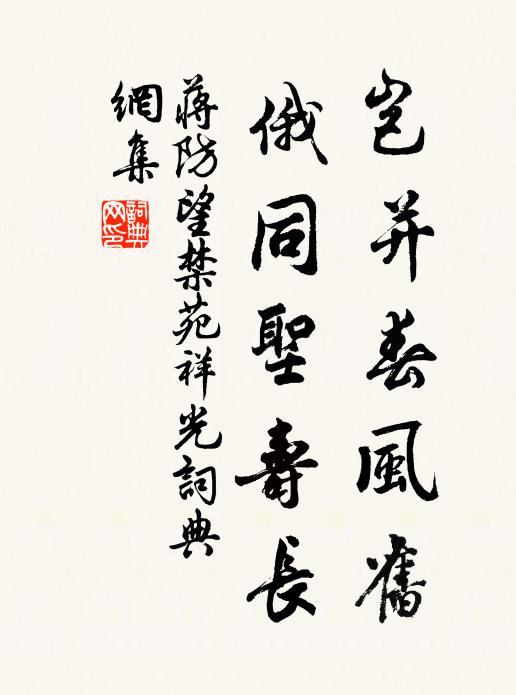 岂并春風舊
俄同聖壽長
蔣防望禁苑祥光詞典
網集
詞典
网印